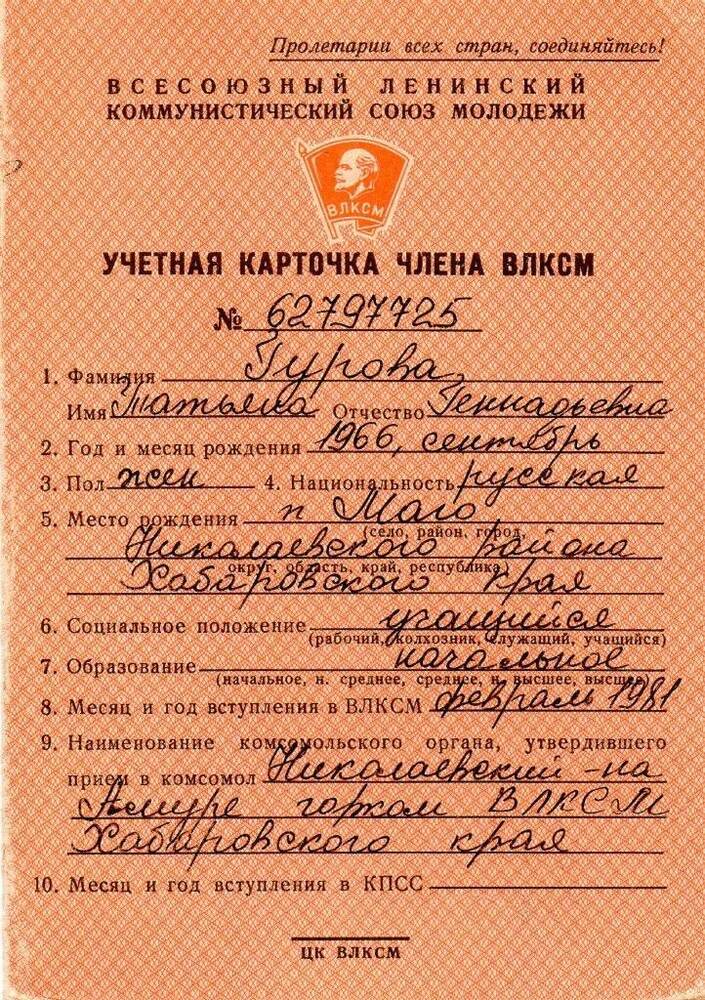 Пролетарии всех стран, соединяйтесь!
ВСЕСОЮЗНЫЙ ЛЕНИНСКИЙ
КОММУНИСТИЧЕСКИЙ СОЮЗ МОЛОДЕЖИ
ВЛКСМ
УЧЕТНАЯ КАРТОЧКА ЧЛЕНА ВЛКСМ
№ 62797725
1. Фамилия Гурова
Имя Татьяна Отчество Геннадьевна
2. Год и месяц рождения 1966, сентябрь
3. Пол жен 4. Национальность русская
5. Место рождения п Маго
(село, район, город,
Николаевского района
округ, область, край, республика)
Хабаровского края
6. Социальное положение учащийся
(рабочий, колхозник, служащий, учащийся)
7. Образование начальное
(начальное, н. среднее, среднее, н. высшее, высшее)
8. Месяц и год вступления в ВЛКСМ февраль 1981
9. Наименование комсомольского органа, утвердившего
прием в комсомол Николаевский-на
Амуре горком ВЛКСМ
Хабаровского края
10. Месяц и год вступления в КПСС
ЦК ВЛКСМ